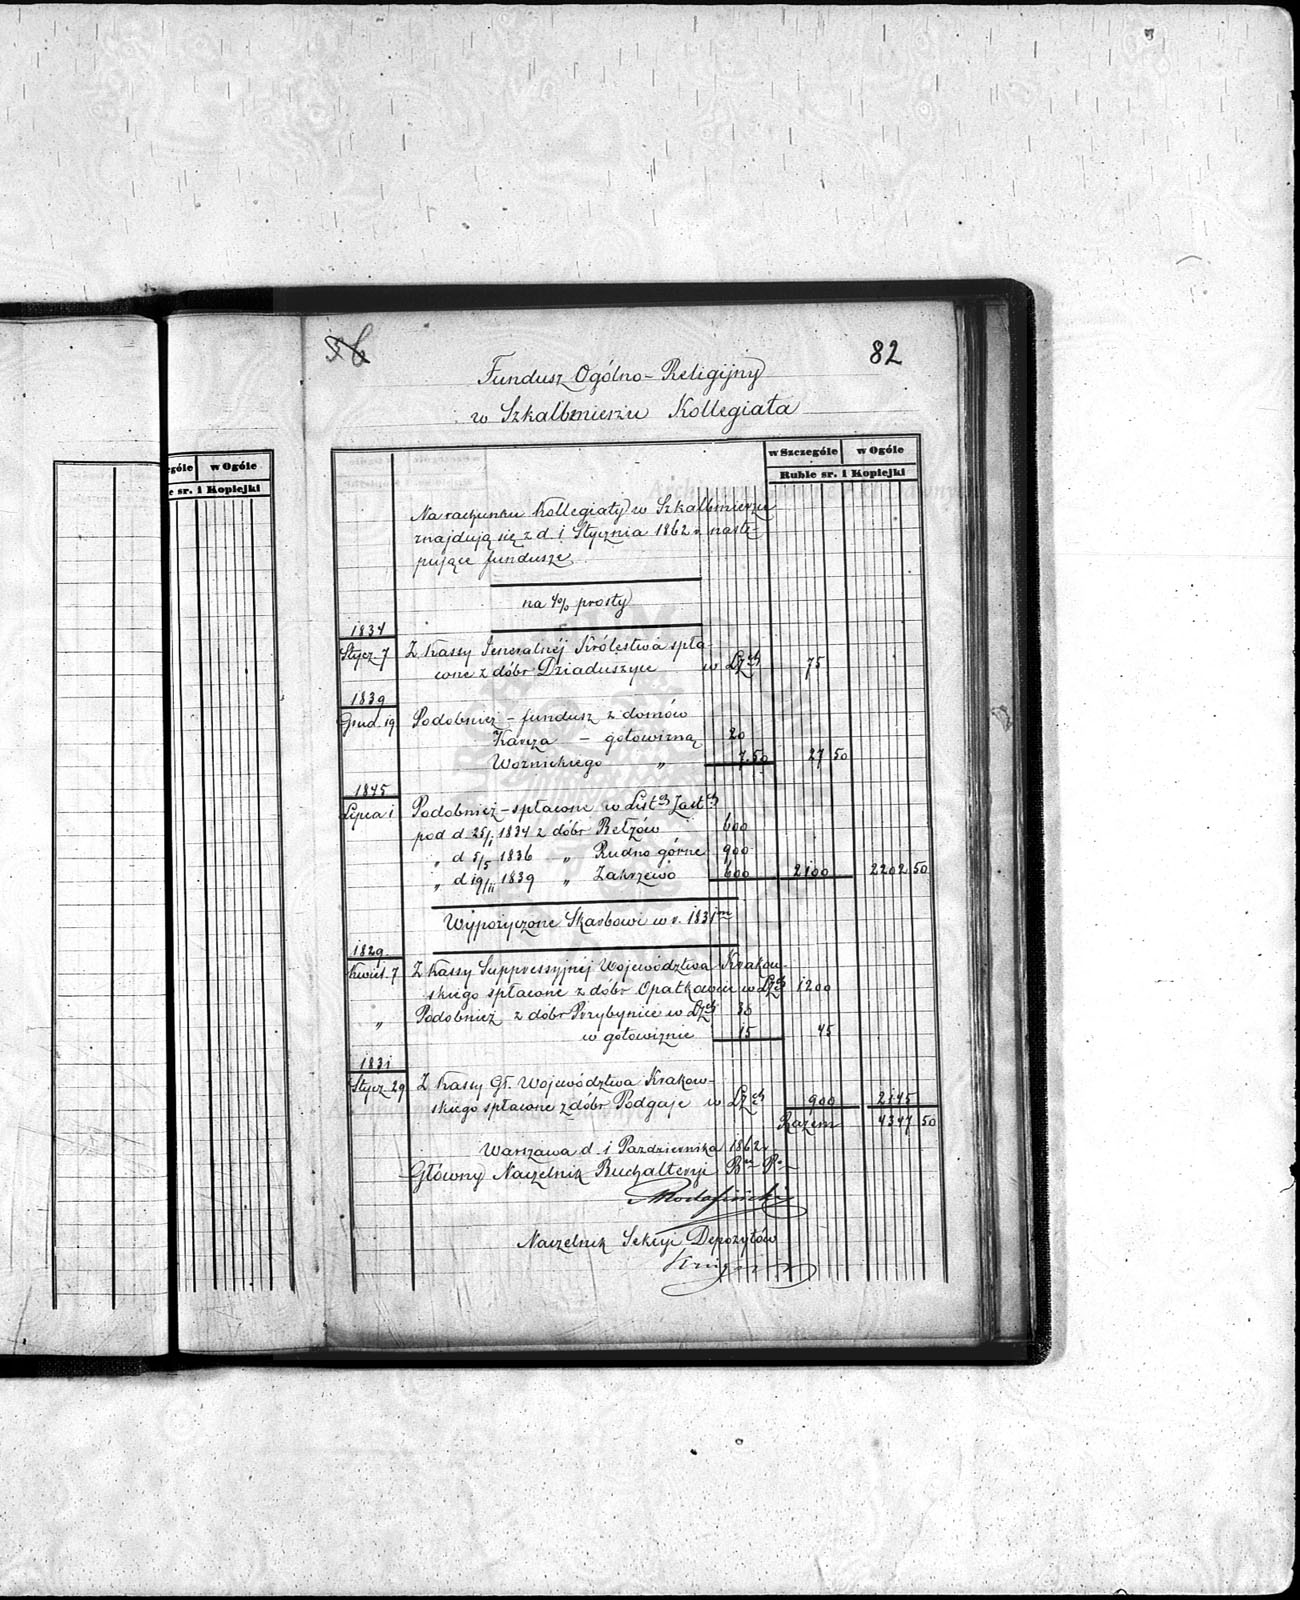 56
82
Fundusz Ogólno-Religijny
w Szkalbmierzu Kollegiata
w Szczególe w Ogóle
Ruble sr. i Kopiejki
ególe w Ogóle
e sr. i Kopiejki
Na rachunku Kollegiaty w Szkalbmierzu
znajdują się z d. 1 Stycznia 1862 r. nastę-
pujące fundusze
na 4% prosty
1834
Stycz. 7 Z Kassy Jeneralnéj Królestwa spła
cone z dóbr Dziaduszyce w Lz^ch 75
1839
Grud. 19 Podobnież - fundusz z domów
Karcza - gotowizną 20
Woznickiego " 7.50 27 50
1845
Lipca 1 Podobnież - spłacone w List^ch Zast^ch
pod d. 25/1 1834 z dóbr Bełzów 600
" d 5/5 1836 " Rudno górne 900
" d 19/11 1839 " Zakrzewo 600 2100 2202 50
Wypożyczone Skarbowi w r. 1831^m
1829
Kwiet. 7 Z Kassy Suppressyjnéj Województwa Krakow-
skiego spłacone z dóbr Opatkowice w Lz^ch 1200
" Podobnież z dóbr Przybynice w Lz^ch 30
w gotowiznie 15 45
1831
Stycz. 29 Z Kassy Gł. Województwa Krakow-
skiego spłacone z dóbr Podgaje w Lz^ch 900 2145
Razem 4347 50
Warszawa d. 1 Pazdziernika 1862 r.
Główny Naczelnik Buchalteryi
Naczelnik Sekcyi Depozytów